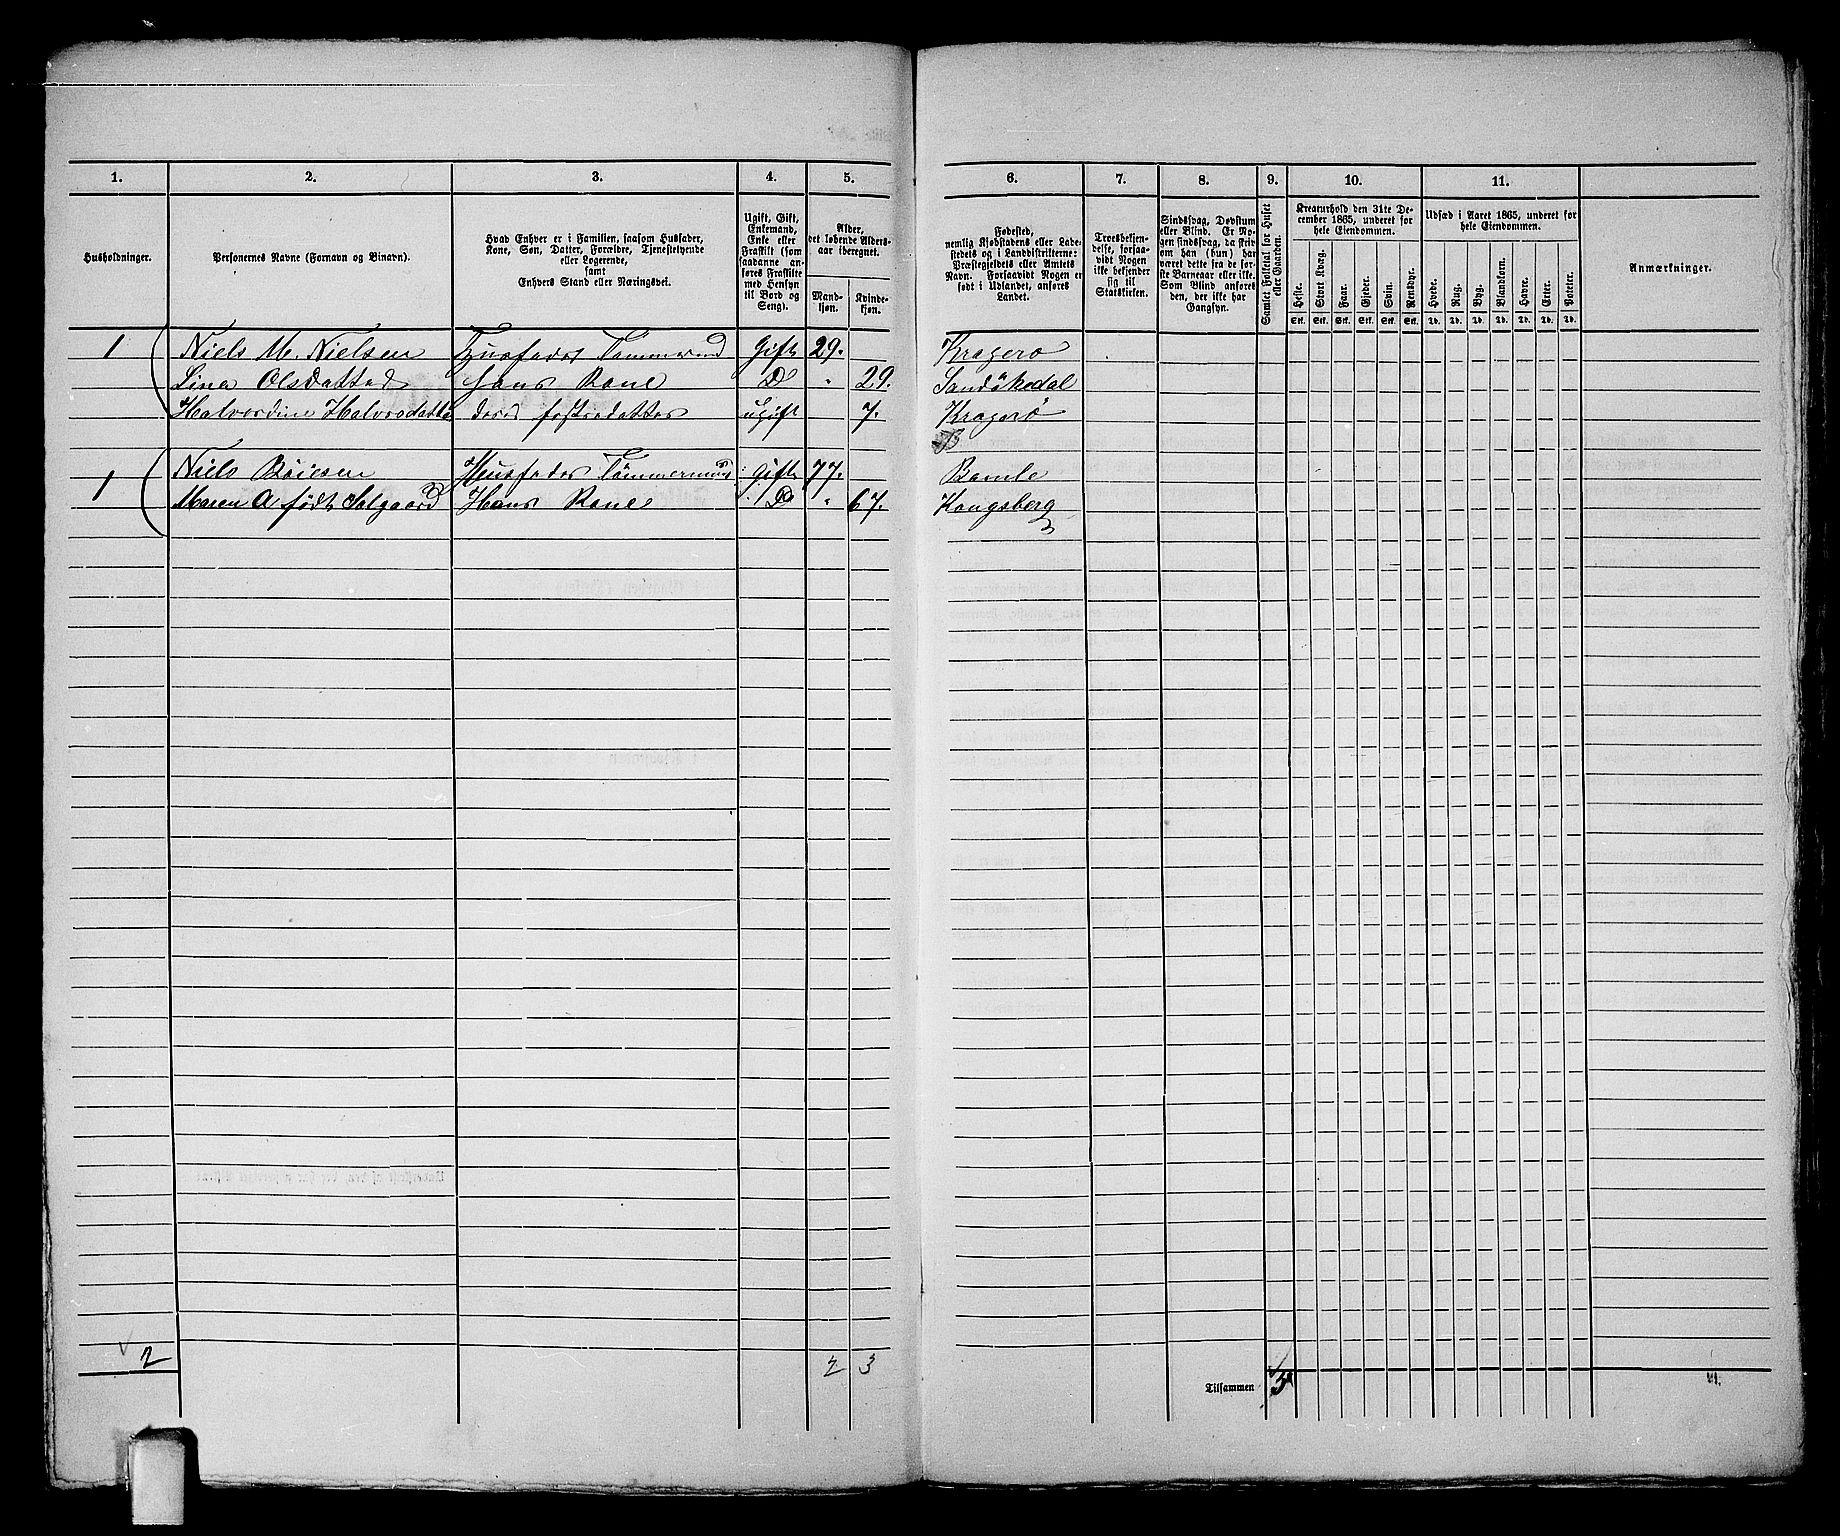 1. 2. 3. 4. 5. 6. 7. 8. 9. 10. 11.
Husholdninger.
Personernes Navne (Fornavn og Binavn).
Hvad Enhver er i Familien, saasom Husfader,
Kone, Søn, Datter, Forældre, Tjenestetyende
eller Logerende,
samt
Enhvers Stand eller Næringsvei.
Ugift, Gift,
Enkemand,
Enke eller
Fraskilt (som
saadanne an-
føres Fraskilte
med Hensyn
til Bord og
Seng).
Alder,
det løbende Alders-
aar iberegnet.
Mand-
kjøn.
Kvinde-
kjøn.
Fødested,
nemlig Kjøbstadens eller Lade-
stedets og i Landdistrikterne:
Præstegjeldets eller Amtets
Navn. Forsaavidt Nogen er
født i Udlandet, anføres
Landet.
Troesbekjen-
delse, forsaa-
vidt Nogen
ikke bekjender
sig til
Statskirken.
Sindssvag, Døvstum
eller Blind. Er No-
gen sindssvag, da skriv
om han (hun) har
været dette fra de før-
ste Barneaar eller ikke.
Som Blind anføres
den, der ikke har
Gangsyn.
Samlet Folketal for Huset
eller Gaarden.
Kreaturhold den 31te De-
cember 1865, underet for
hele Eiendommen.
Heste. Stort Kvæg. Faar. Gjeder. Svin. Rensdyr.
Stk. Stk. Stk. Stk. Stk. Stk.
Udsæd i Aaret 1865, underet for
hele Eiendommen.
Hvede. Rug. Byg. Blandkorn. Havre. Erter. Poteter.
Td. Td. Td. Td. Td. Td. Td.
Anmærkninger.
1 Niels M. Nielsen Husfader Tømmermd Gift 29. Kragerø
Lina Olsdatter Hans Kone D " 29. Sandøkedal
Halvordine Halvorsdatte deres fostredatter ugift 7. Kragerø
1 Niels Böiesen Husfader Tömmermand Gift 77. Bamle
Maren A født Solgaard Hans Kone D " 67. Kongsberg
2 2 3
Tilsammen 5